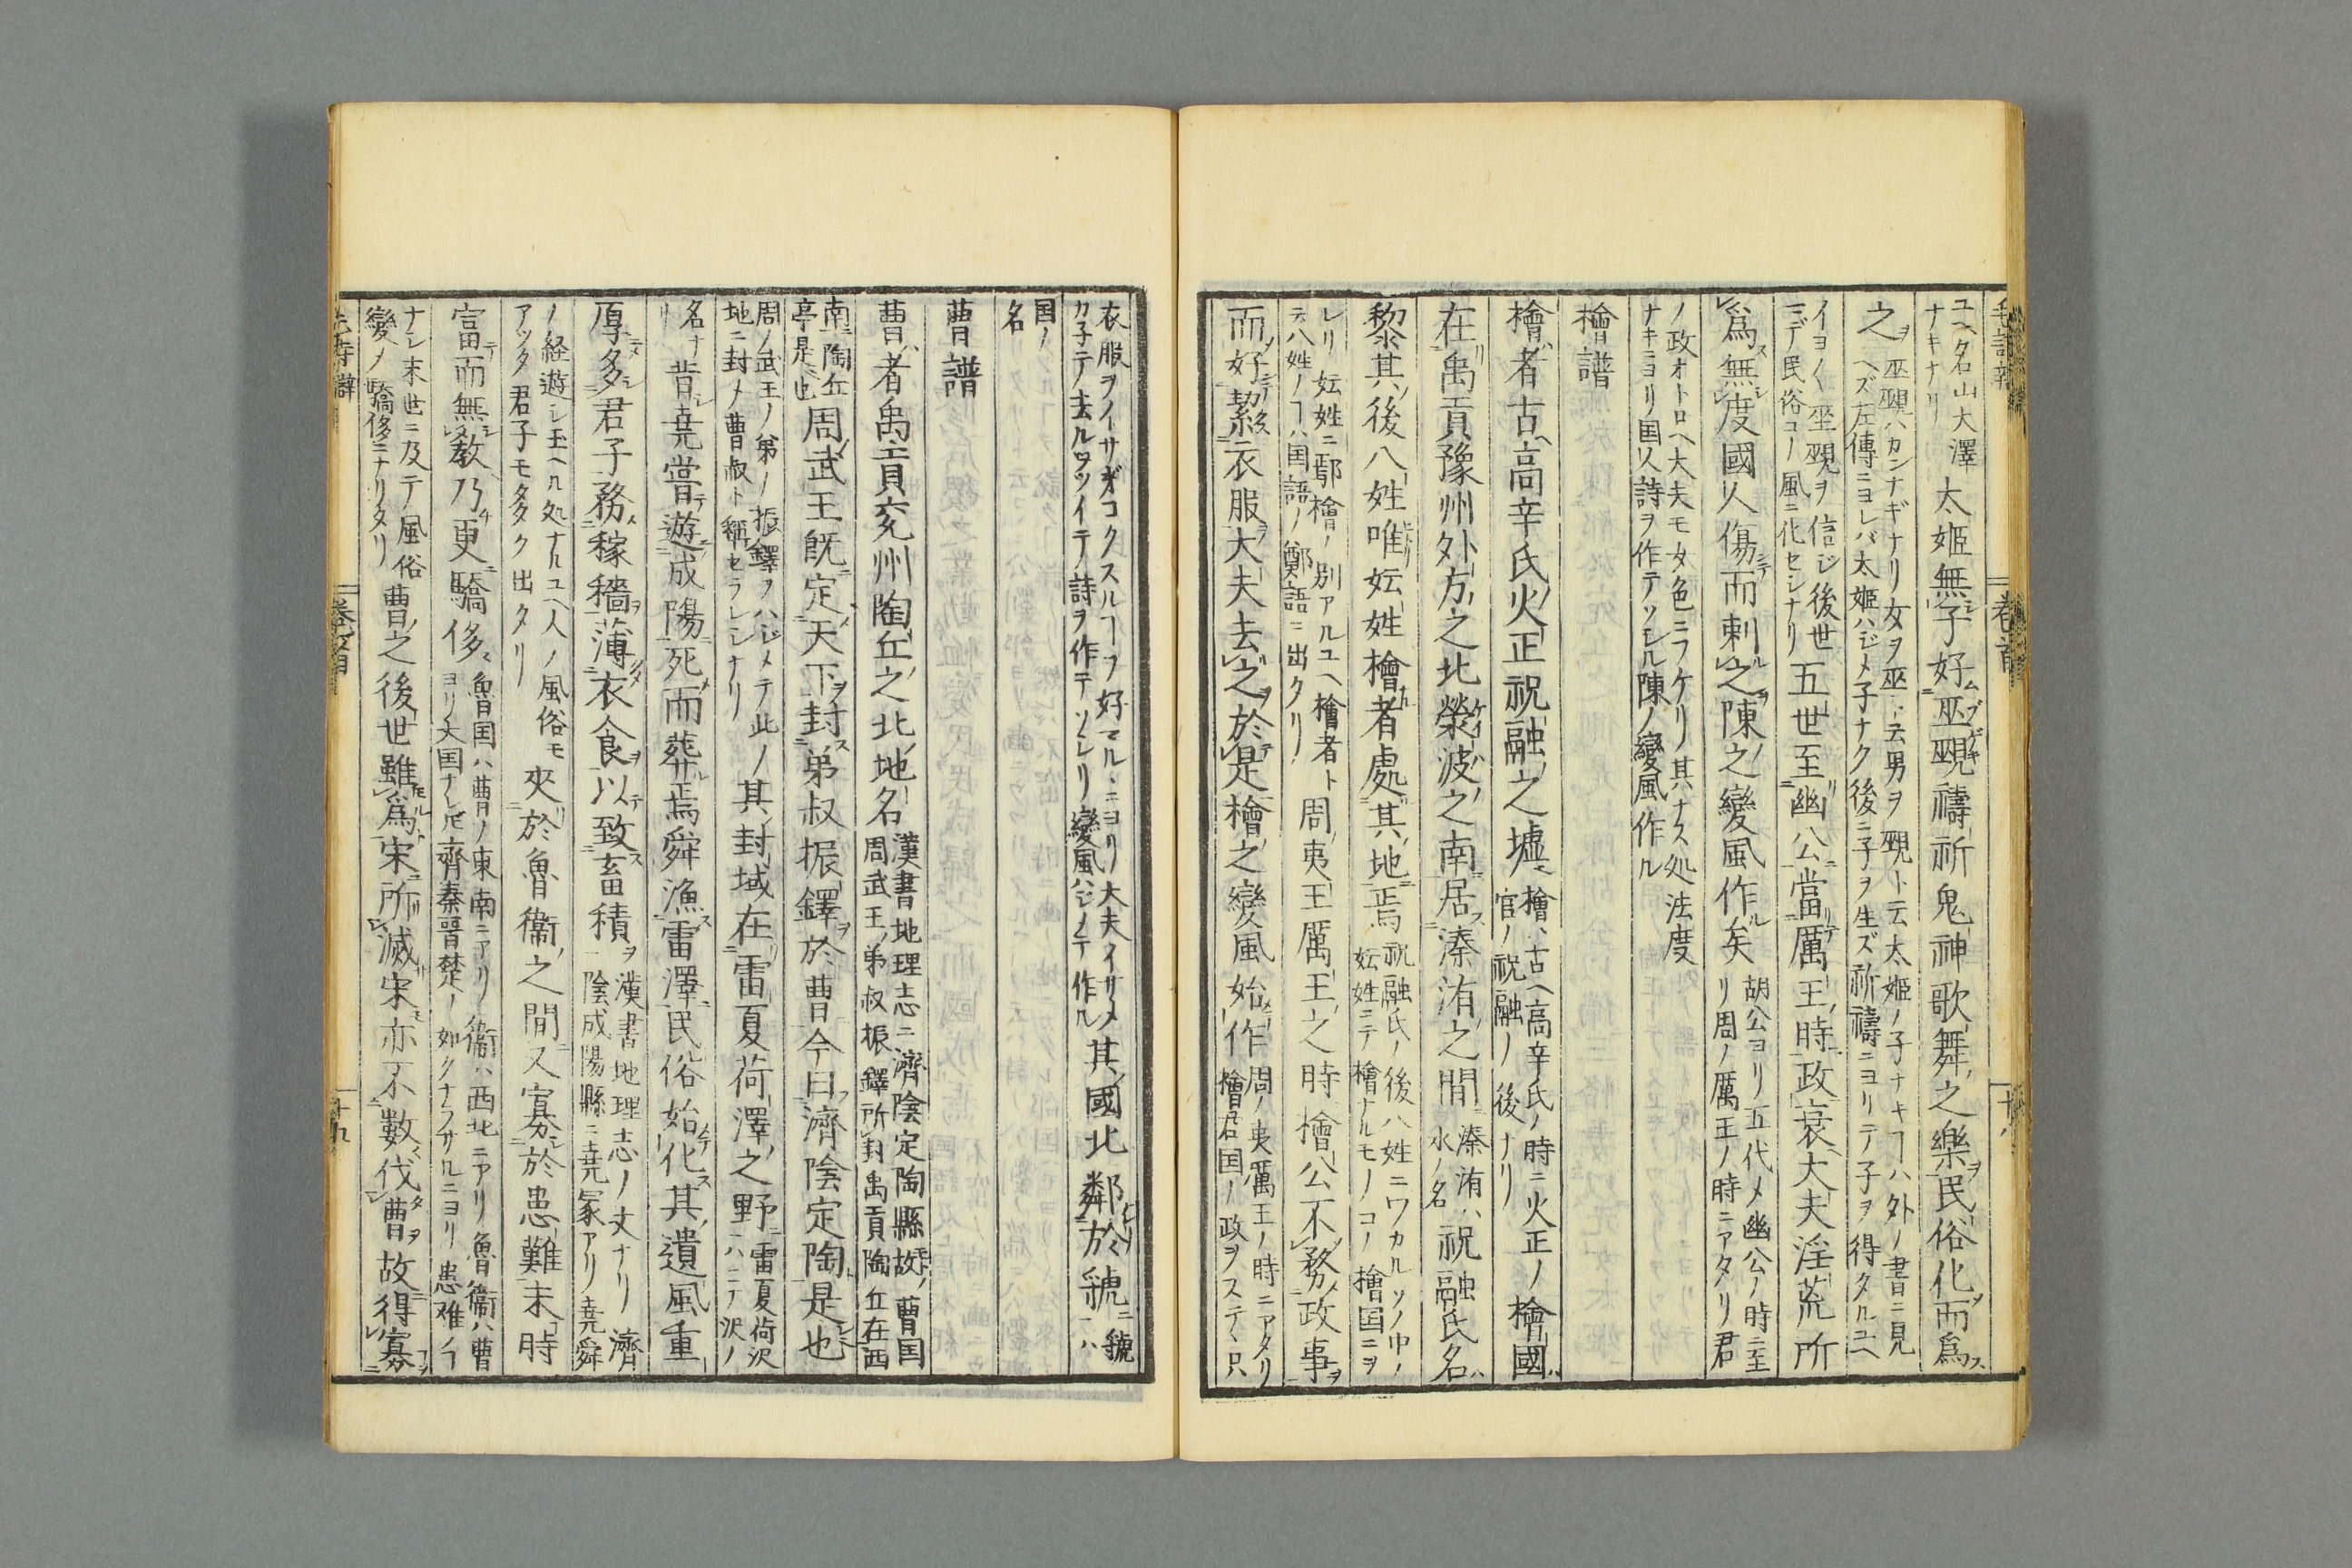 ユヘ名山大澤
ナキナリ
太姫無子好巫覡禱祈鬼神歌舞之樂民俗化而爲
之
巫覡ハカンナギナリ女ヲ巫ト云男ヲ覡ト云太姫ノ子ナキヿハ外ノ書ニ見
ヘズ左傳ニヨレバ太姫ハジメ子ナク後ニ子ヲ生ズ祈禱ニヨリテ子ヲ得タルユヘ
イヨ〱巫覡ヲ信ジ後世
ニテ民俗コノ風ニ化セシナリ
五世至幽公當厲王時政衰大夫淫荒所
爲無度國人傷而刺之陳之變風作矣
胡公ヨリ五代メ幽公ノ時ニ至
リ周ノ厲王ノ時ニアタリ君
ノ政オトロヘ大夫モ色ニフケリ其ナス処法度
ナキニヨリ国人詩ヲ作テソシル陳ノ變風作ル
檜譜
檜者古高辛氏火正祝融之墟
檜ハ古ヘ高辛氏ノ時ニ火正ノ
官ノ祝融ノ後ナリ
檜國
在禹貢豫州外方之北滎波之南居溱洧之間
溱洧ハ
水ノ名
祝融氏名
黎其後八姓唯妘姓檜者處其地焉
祝融氏ノ後八姓ニワカルソノ中ノ
妘姓ニテ檜ナルモノコノ檜国ニヲ
レリ妘姓ニ鄢檜ノ別アルユヘ檜者ト
云八姓ノヿハ国語ノ鄭語ニ出タリ
周夷王厲王之時檜公不務政事
而好絜衣服大夫去之於是檜之變風始作
周ノ夷厲王ノ時ニアタリ
檜君国ノ政ヲステヽ只
衣服ヲイサギヨクスルヿヲ好マルヽニヨリ大夫イサメ
カ子テ去ルヲツイテ詩ヲ作テソシリ變風ハジメテ作ル
其國北鄰於虢
虢ハ
国ノ
名
曹譜
曹者禹貢兗州陶丘之北地名
漢書地理志ニ濟陰定陶縣故ノ曹国
周武王ノ弟叔振鐸所封禹貢陶丘在西
南陶丘
亭是也
周武王旣定天下封弟叔振鐸於曹今曰濟陰定陶是也
周ノ武王ノ弟ノ振鐸ヲハジメテ此ノ
地ニ封メ曹叔ト稱セラレシナリ
其封域在雷夏荷澤之野
雷夏荷沢
ハ二テ沢ノ
名ナ
リ
昔堯嘗遊成陽死而葬焉舜漁雷澤民俗始化其遺風重
厚多君子務稼穡薄衣食以致畜積
漢書地理志ノ文ナリ濟
陰成陽縣ニ堯冢アリ堯舜
ノ経遊シ玉ヘル処ナルユヘ人ノ風俗モ
アツク君子モ多ク出タリ
夾於魯衞之間又寡於患難末時
富而無教乃更驕侈
魯国ハ曹ノ東南ニアリ衞ハ西北ニアリ魯衞ハ曹
ヨリ大国ナレ𪜈齊秦晉楚ノ如クナラザルニヨリ患难ノヿ
ナシ末世ニ及テ風俗
變メ驕侈ニナリタリ
曹之後世雖爲宋所滅宋亦不數伐曹故得寡
毛詩辨
卷首
十九